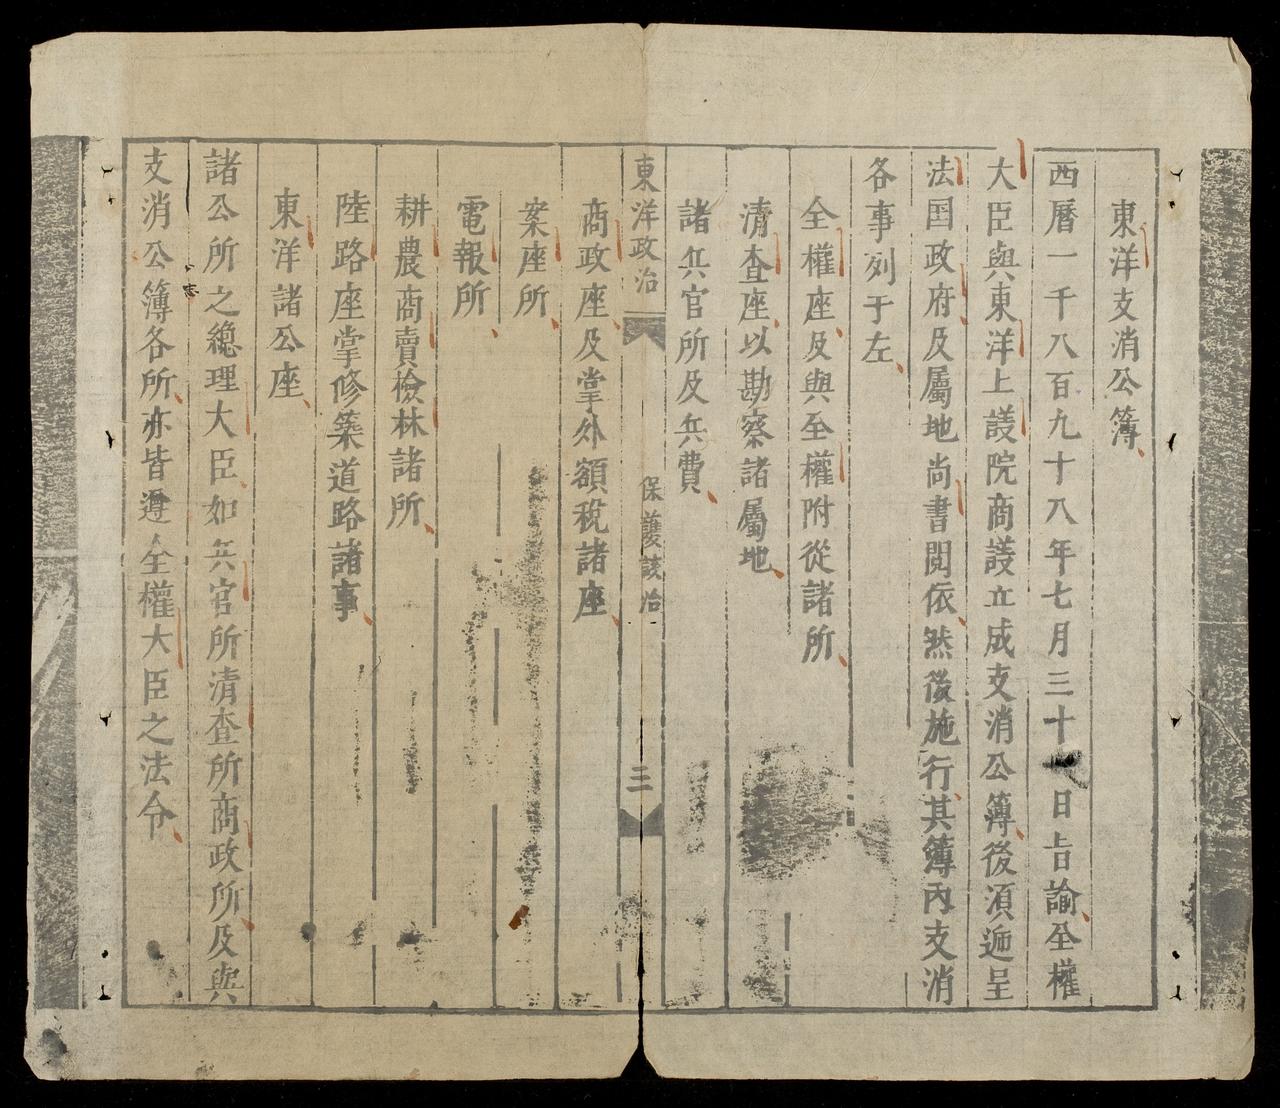 東洋支消公簿
西曆一千八百九十八年七月三十日㫖諭全權
大臣與東洋上議院商議立成支消公簿後須遞呈
法国政府及屬地尚書閱依然後施行其簿內支消
各事列于左
全權座及與全權附從諸所
清查座以勘察諸屬地
諸兵官所及兵費
東洋政治 保護政治 三
商政座及掌外額稅諸座
案座所
電報所
耕農商賣檢林諸所
陸路座掌修築道路諸事
東洋諸公座
諸公所之總理大臣如兵官所清查所商政所及與
支消公簿各所亦皆遵全權大臣之法令